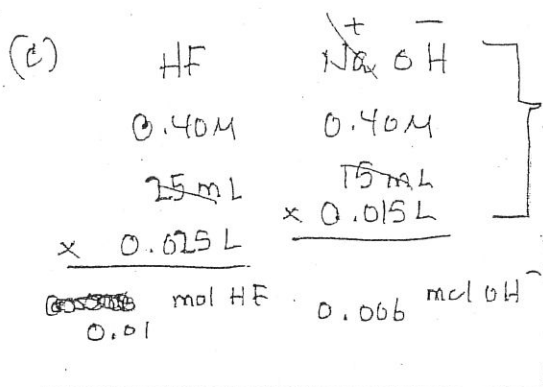 (c) HF Na+ OH−
0.40M 0.40M
25 mL 15 mL
x 0.025 L x 0.015 L
mol HF 0.006 mol OH−
0.01